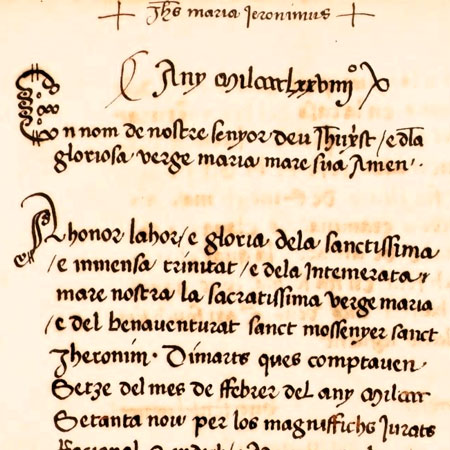 + Jh̅s maria Jeronimus +
Any Milccccxxviiijº
En nom de nostre senyor deu Jh̅u xp̅st / e de la
gloriosa verge maria mare sua Amen ·
A honor lahor / e gloria dela sanctissima
/ e inmensa trinitat / e dela Intemerata
mare nostra la sacratissima verge maria
/ e del benaventurat sanct mossenyer sanct
Jheronim · Dimarts ques comptaven
Setze del mes de ffebrer del any Milcccc
Setanta nou per los magniffichs Jurats